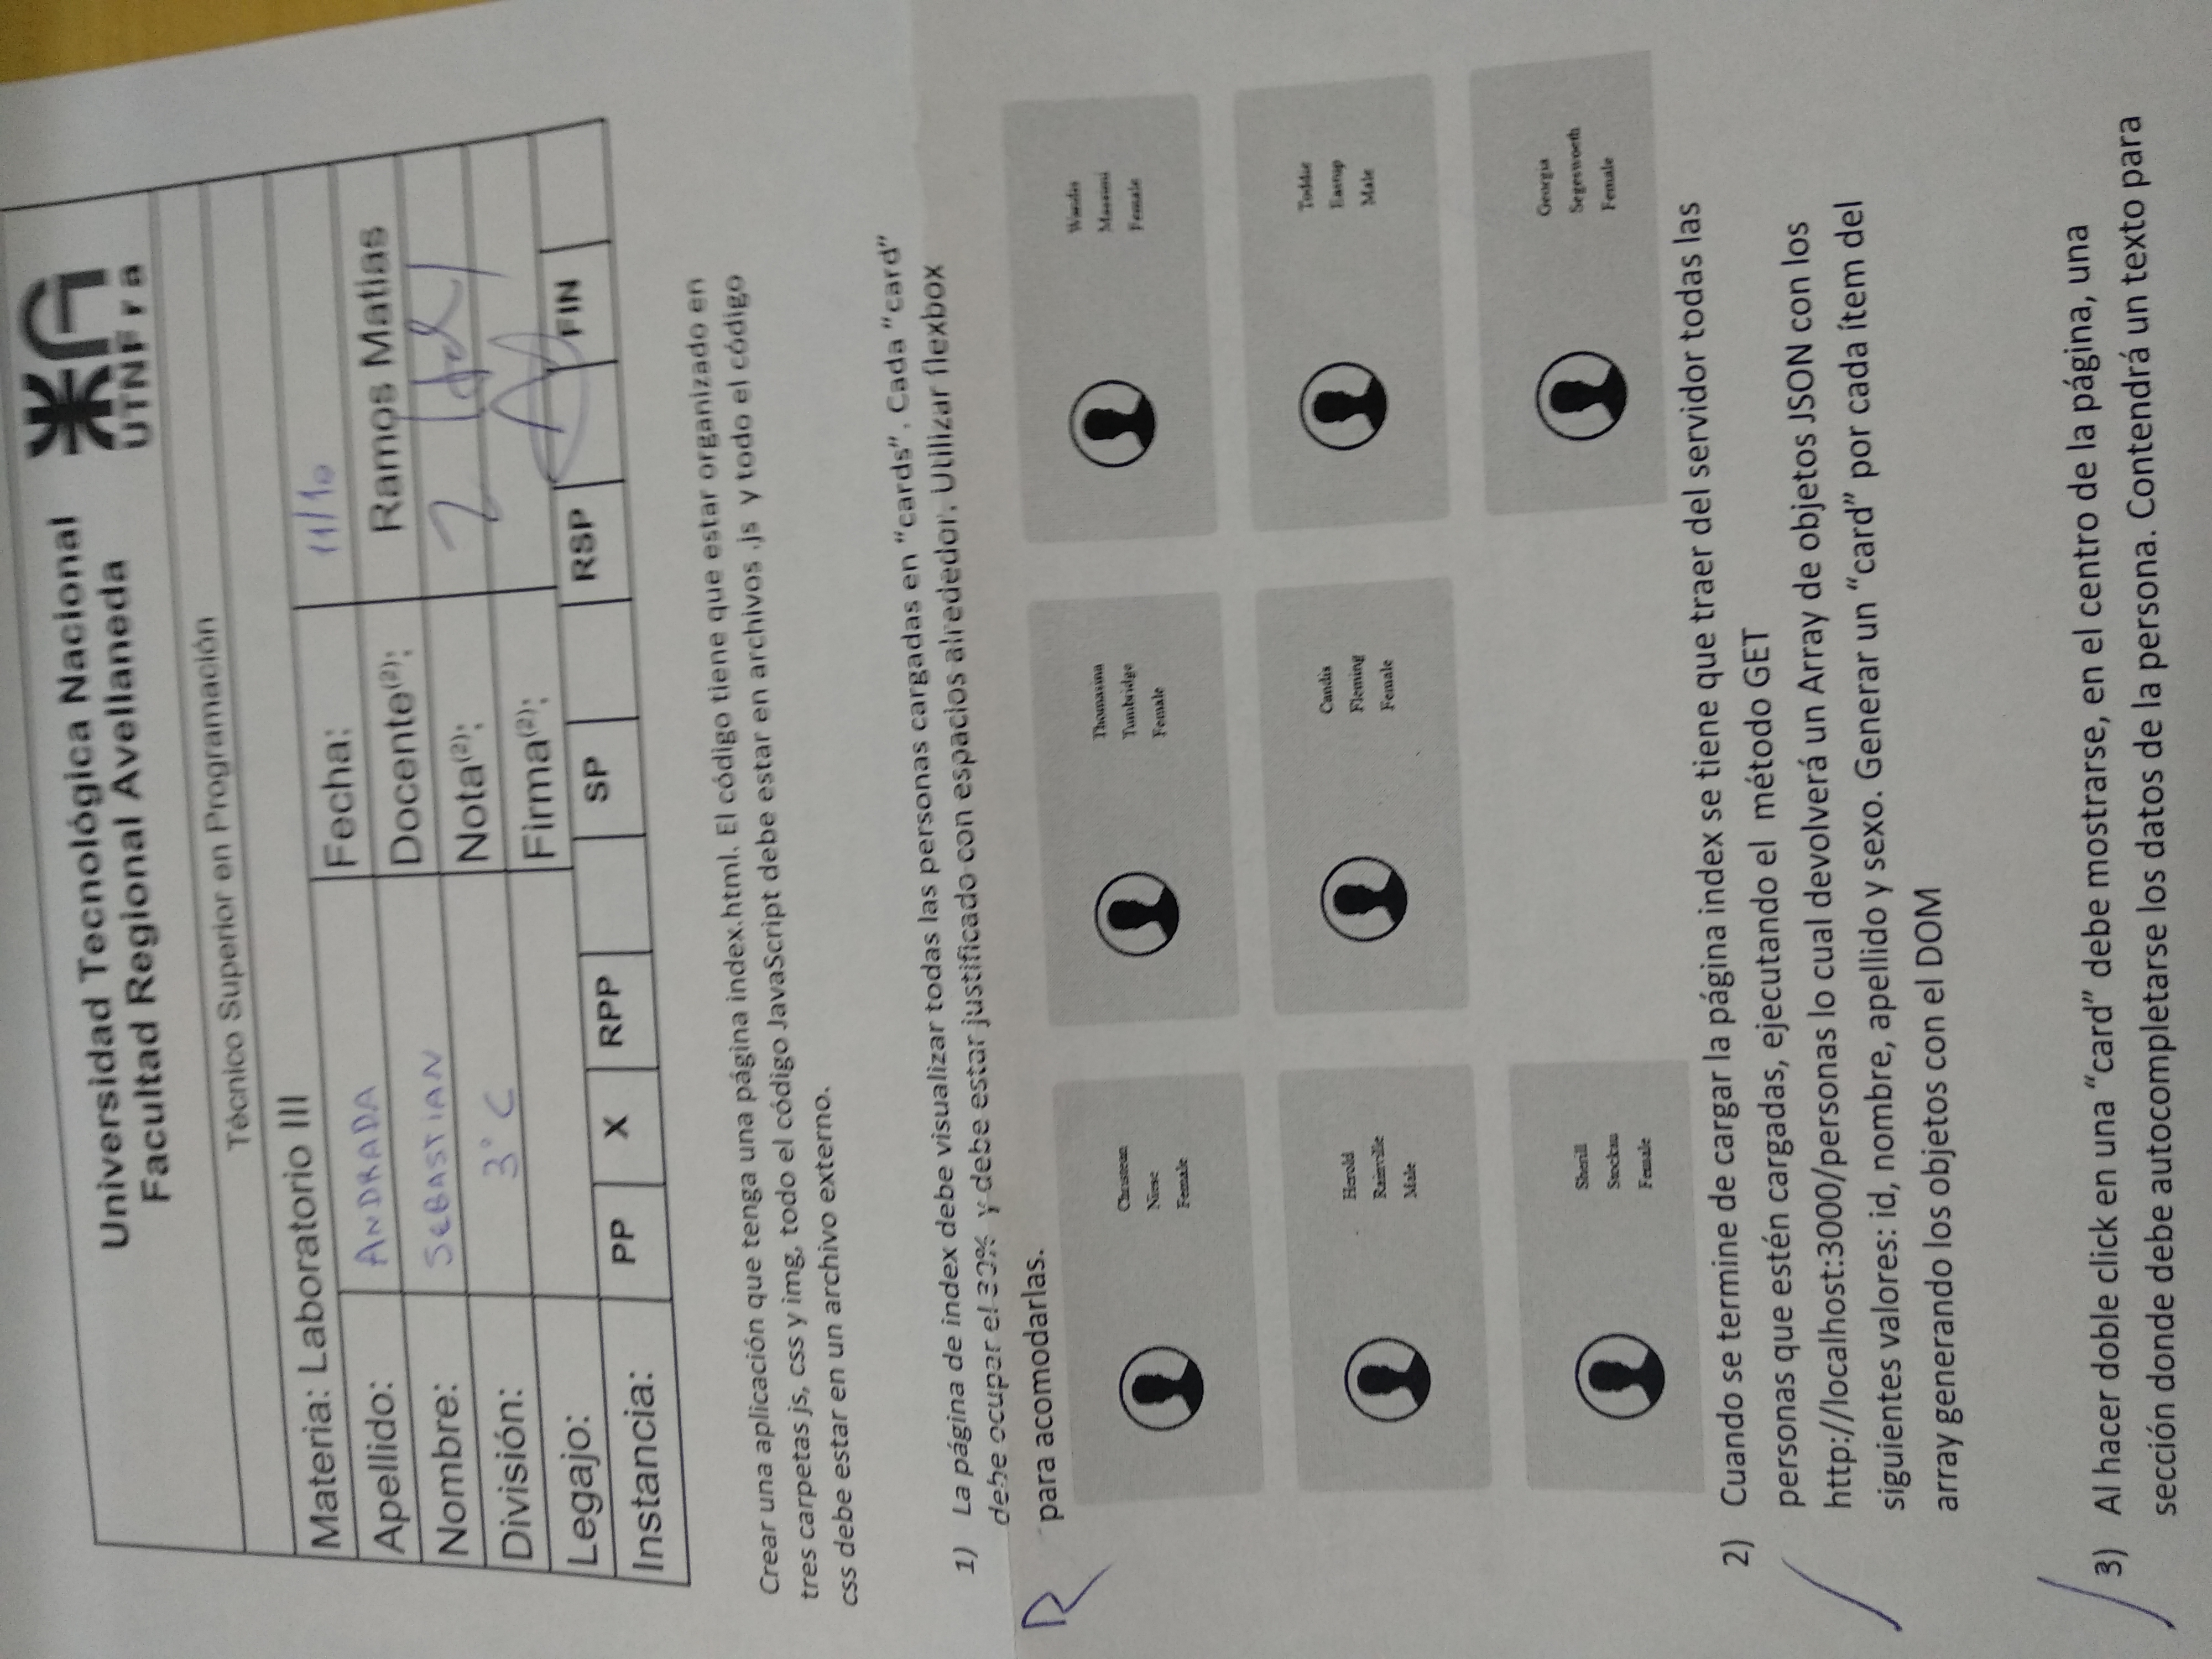 Universidad Tecnológica Nacional
Facultad Regional Avellaneda
UTNFra
Técnico Superior en Programación
Materia: Laboratorio III
Apellido: ANDRADA Fecha: 11/10
Nombre: SEBASTIAN Docente(2): Ramos Matias
División: 3° C Nota(2): 2
Legajo: Firma(2):
Instancia: PP X RPP SP RSP FIN
Crear una aplicación que tenga una página index.html. El código tiene que estar organizado en
tres carpetas js, css y img, todo el código JavaScript debe estar en archivos .js y todo el código
css debe estar en un archivo externo.
1) La página de index debe visualizar todas las personas cargadas en “cards”. Cada “card”
debe ocupar el 30% y debe estar justificado con espacios alrededor. Utilizar flexbox
para acomodarlas.
R
Christean
Niese
Female
Thomasina
Tumbridge
Female
Wandis
Massimi
Female
Herold
Rainville
Male
Candis
Fleming
Female
Toddie
Eastup
Male
Sherill
Stockau
Female
Georgia
Segesworth
Female
2) Cuando se termine de cargar la página index se tiene que traer del servidor todas las
personas que estén cargadas, ejecutando el método GET
http://localhost:3000/personas lo cual devolverá un Array de objetos JSON con los
siguientes valores: id, nombre, apellido y sexo. Generar un “card” por cada ítem del
array generando los objetos con el DOM
3) Al hacer doble click en una “card” debe mostrarse, en el centro de la página, una
sección donde debe autocompletarse los datos de la persona. Contendrá un texto para